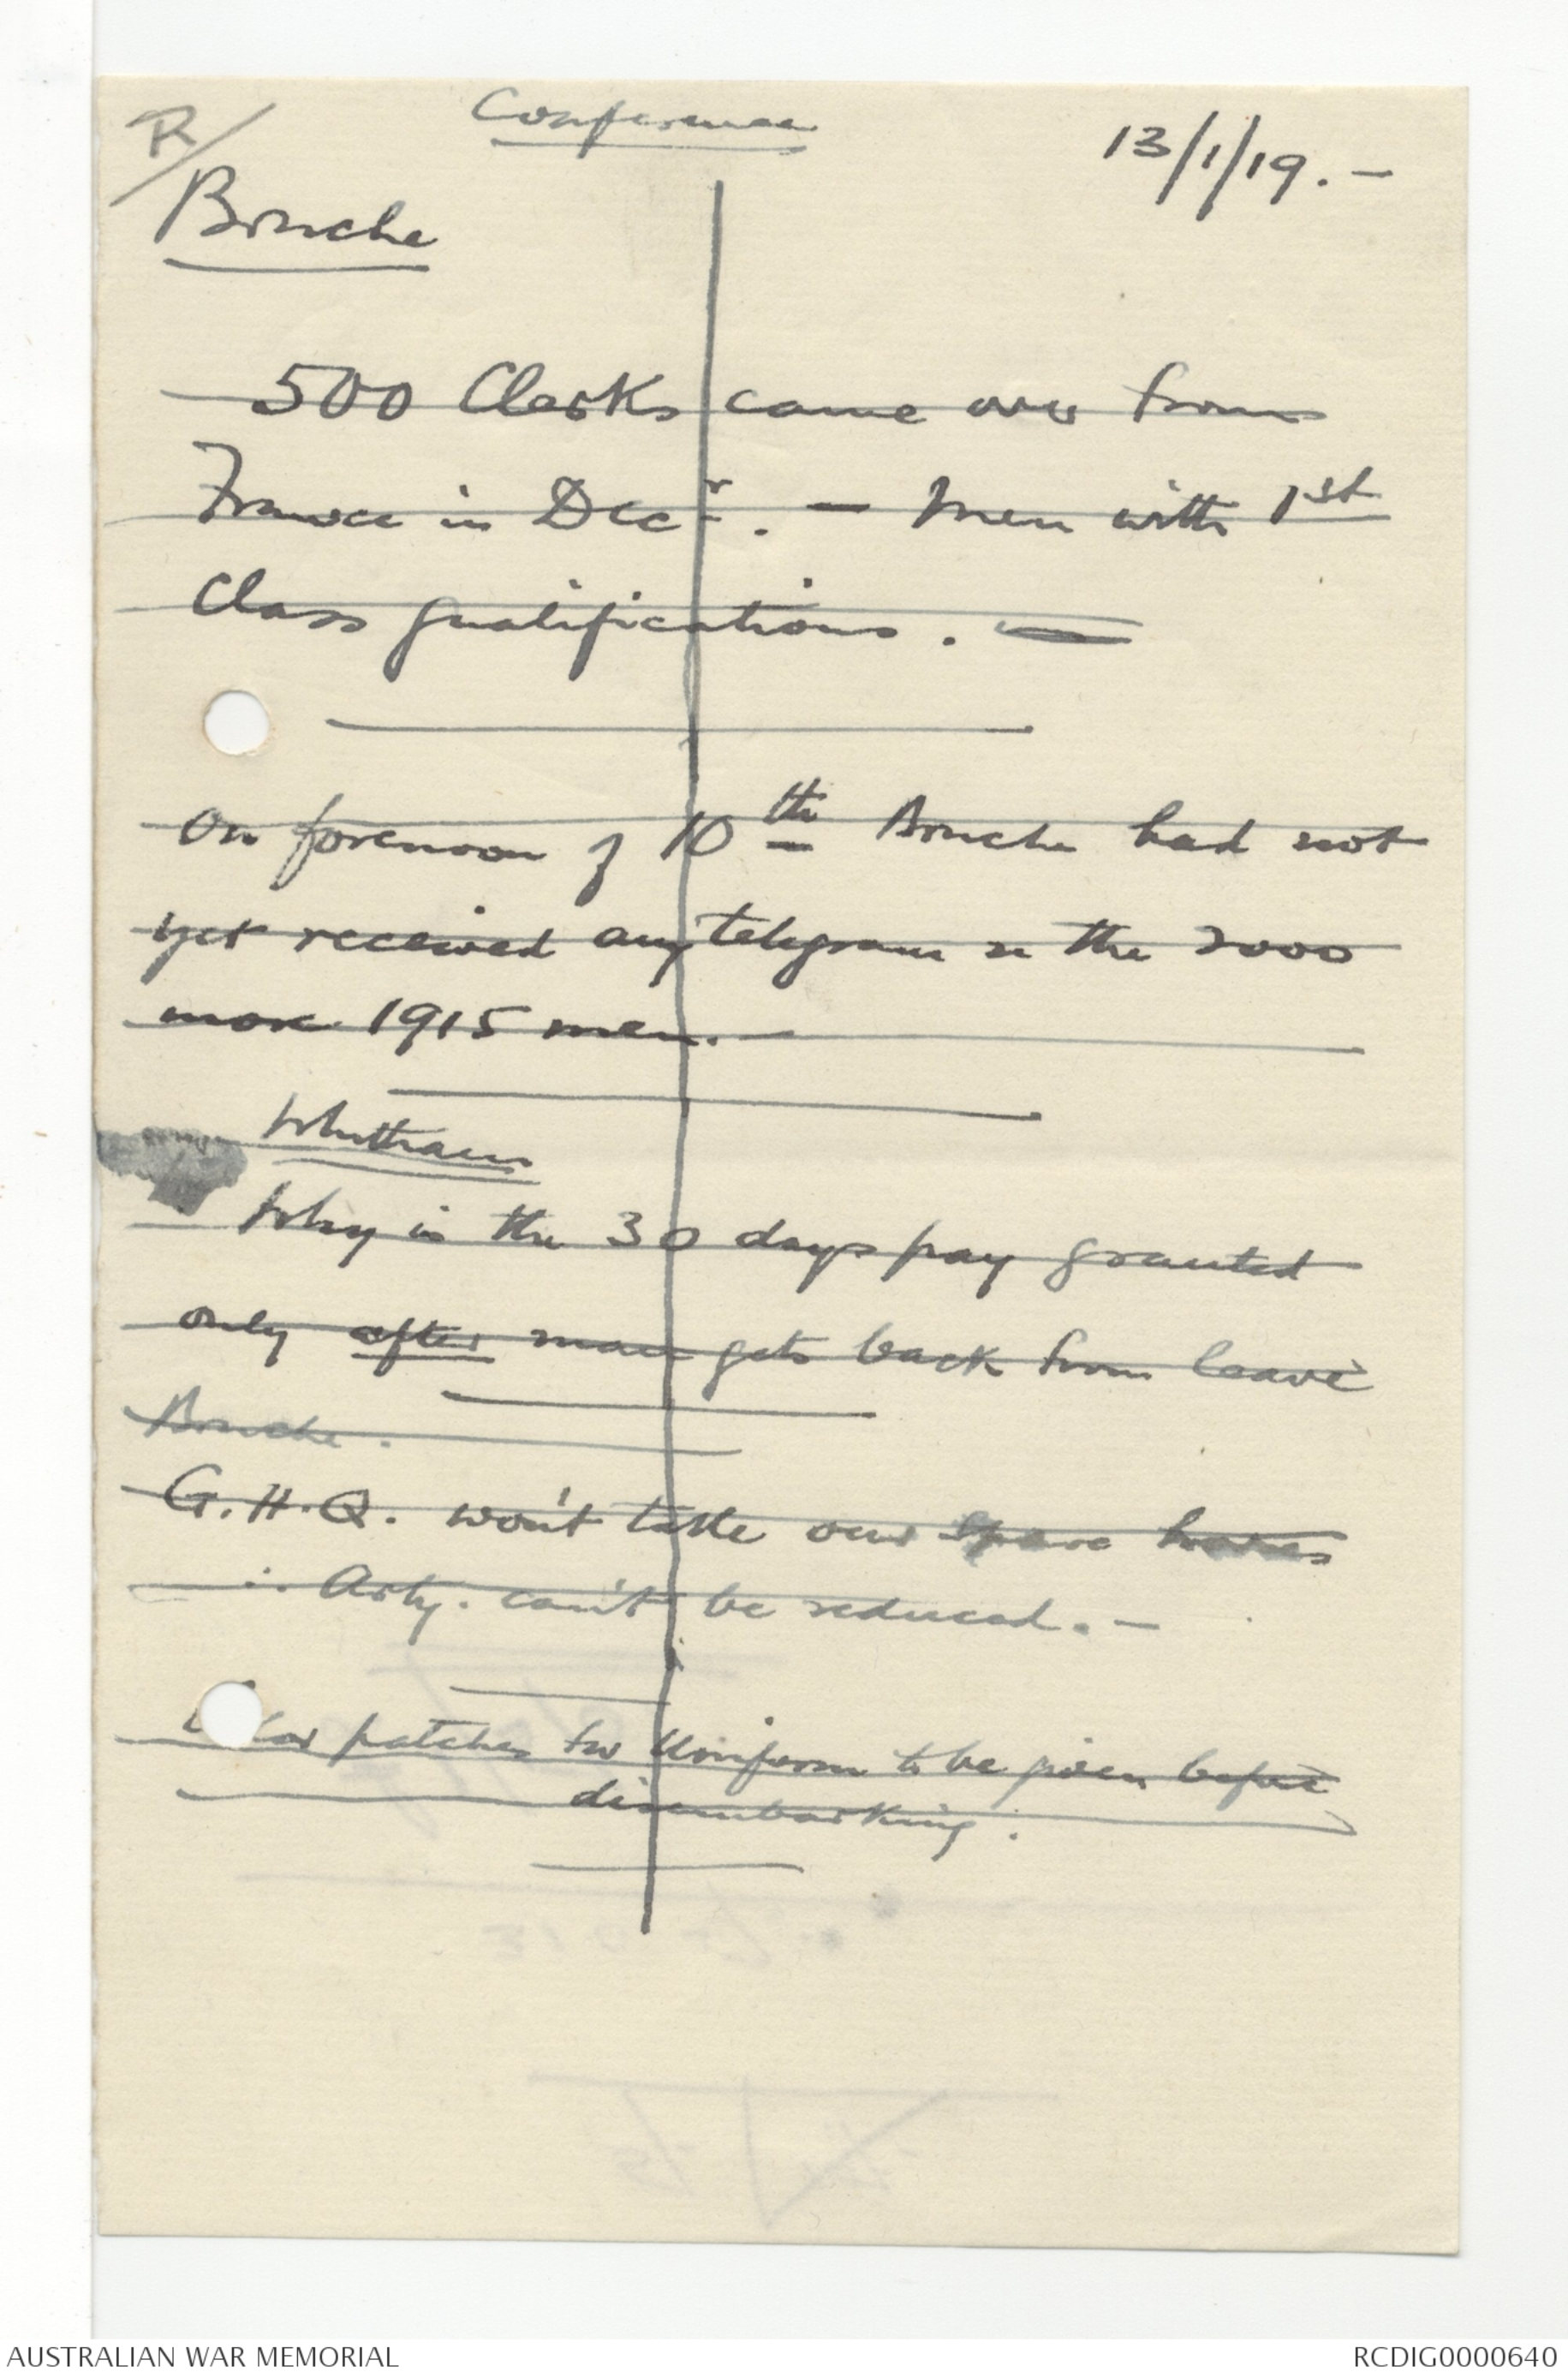 R/
Conference
13/1/19. —
Bruche
500 Clerks came over from
France in Decr. — Men with 1st
Class qualifications. —
On forenoon of 10th Bruche had not
yet received any telegram re the 2000
more 1915 men. —
Whitham
Why is the 30 days pay granted
only after man gets back from leave
Bruche.
G.H.Q. won't take our spare horses
∴ Arty. can't be reduced. —
patches for Uniform to be given before
disembarking.
AUSTRALIAN WAR MEMORIAL
RCDIG0000640